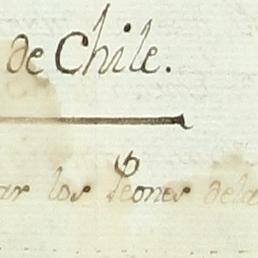 de Chile.
ar los Leones dela